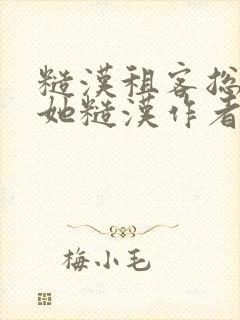 糙漢租客總
她糙漢作者
梅小毛